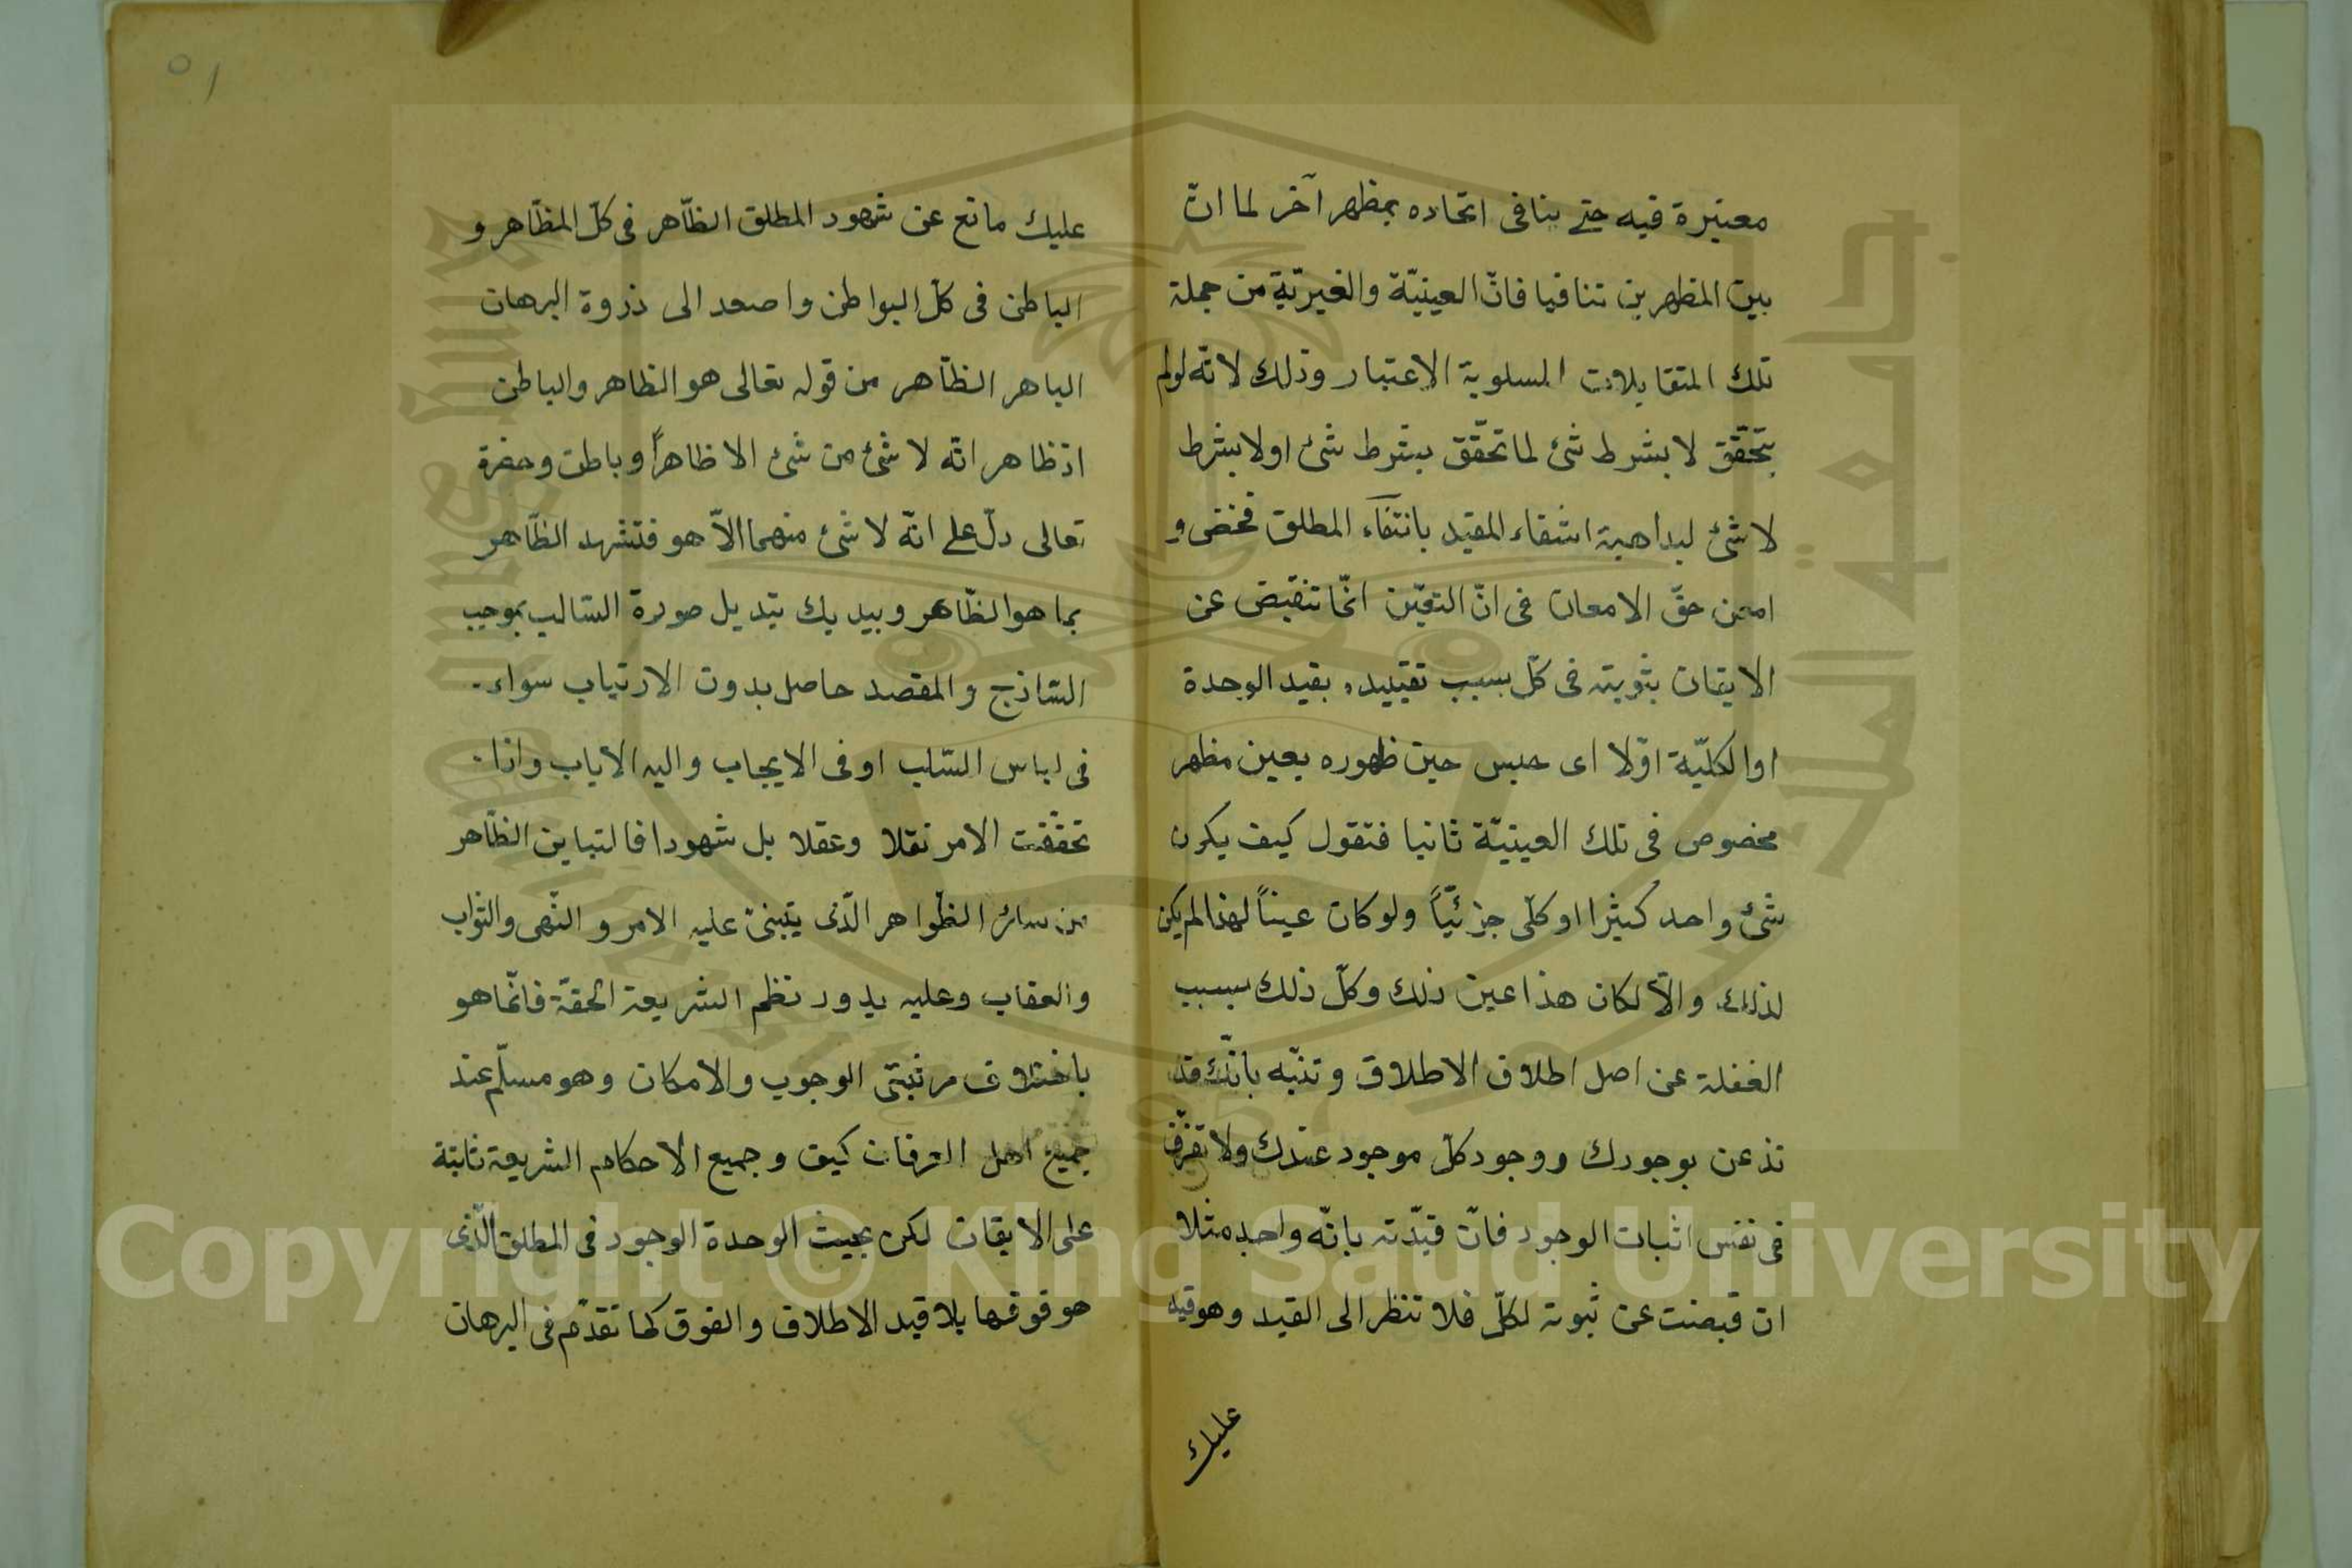 معتبرة فيه حتى ينافى اتحاده بمظهر آخر لما انّ
بين المظهرين تنافيا فانّ العينيّة والغيريّة من جملة
تلك المتقابلات المسلوبة الاعتبار وذلك لانّه لولم
يتحقّق لا بشرط شئ لما تحقّق بشرط شئ او لا بشرط
لا شئ لبداهية انتفاء المقيد بانتفآء المطلق فخض و
امعن حقّ الامعان فى انّ التعيّن انّما تنقبض عن
الايقان بثوبته فى كلّ بسبب تقييده بقيد الوحدة
او الكليّة اوّلا اى حبس حين ظهوره بعين مظهر
مخصوص فى تلك العينيّة ثانيا فتقول كيف يكون
شئ واحد كثيرا او كلّى جزئيّاً ولو كان عيناً لهذا لم يكن
لذلك والّا لكان هذا عين ذلك وكلّ ذلك بسبب
الغفلة عن اصل اطلاق الاطلاق وتنبّه بانّك قد
تذعن بوجودك ووجود كلّ موجود عندك ولا تفرّق
فى نفس اثبات الوجود فانّ قيّدته بانّه واحد مثلا
ان قبضت عن ثبوته لكلّ فلا تنظر الى القيد وهو قيد
عليك
٥١
عليك مانع عن شهود المطلق الظّاهر فى كلّ المظاهر و
الباطن فى كلّ البواطن واصعد الى ذروة البرهان
الباهر الظّاهر من قوله تعالى هو الظاهر والباطن
اذ ظاهر انّه لا شئ من شئ الا ظاهراً وباطن وحضرة
تعالى دلّ على انّه لا شئ منهما الّا هو فتشهد الظّاهر
بما هو الظّاهر وبيديك تبديل صورة السّالب بموجب
السّاذج والمقصد حاصل بدون الارتياب سواء
فى لباس السّلب او فى الايجاب واليه الاياب واذا
تحقّقت الامر نقلا وعقلا بل شهودا فالتباين الظّاهر
من سائر الظّواهر الّذى يتبنى عليه الامر والنّهى والثواب
والعقاب وعليه يدور نظم الشريعة الحقّة فانّما هو
باختلاف مرتبتى الوجوب والامكان وهو مسلّم عند
جميع اهل العرفان كيف وجميع الاحكام الشريعة ثابتة
على الايقان لكن بحيث الوحدة الوجود فى المطلق الّذى
هو فوقها بلا قيد الاطلاق والفوق كما تقدّم فى البرهان
Copyright © King Saud University